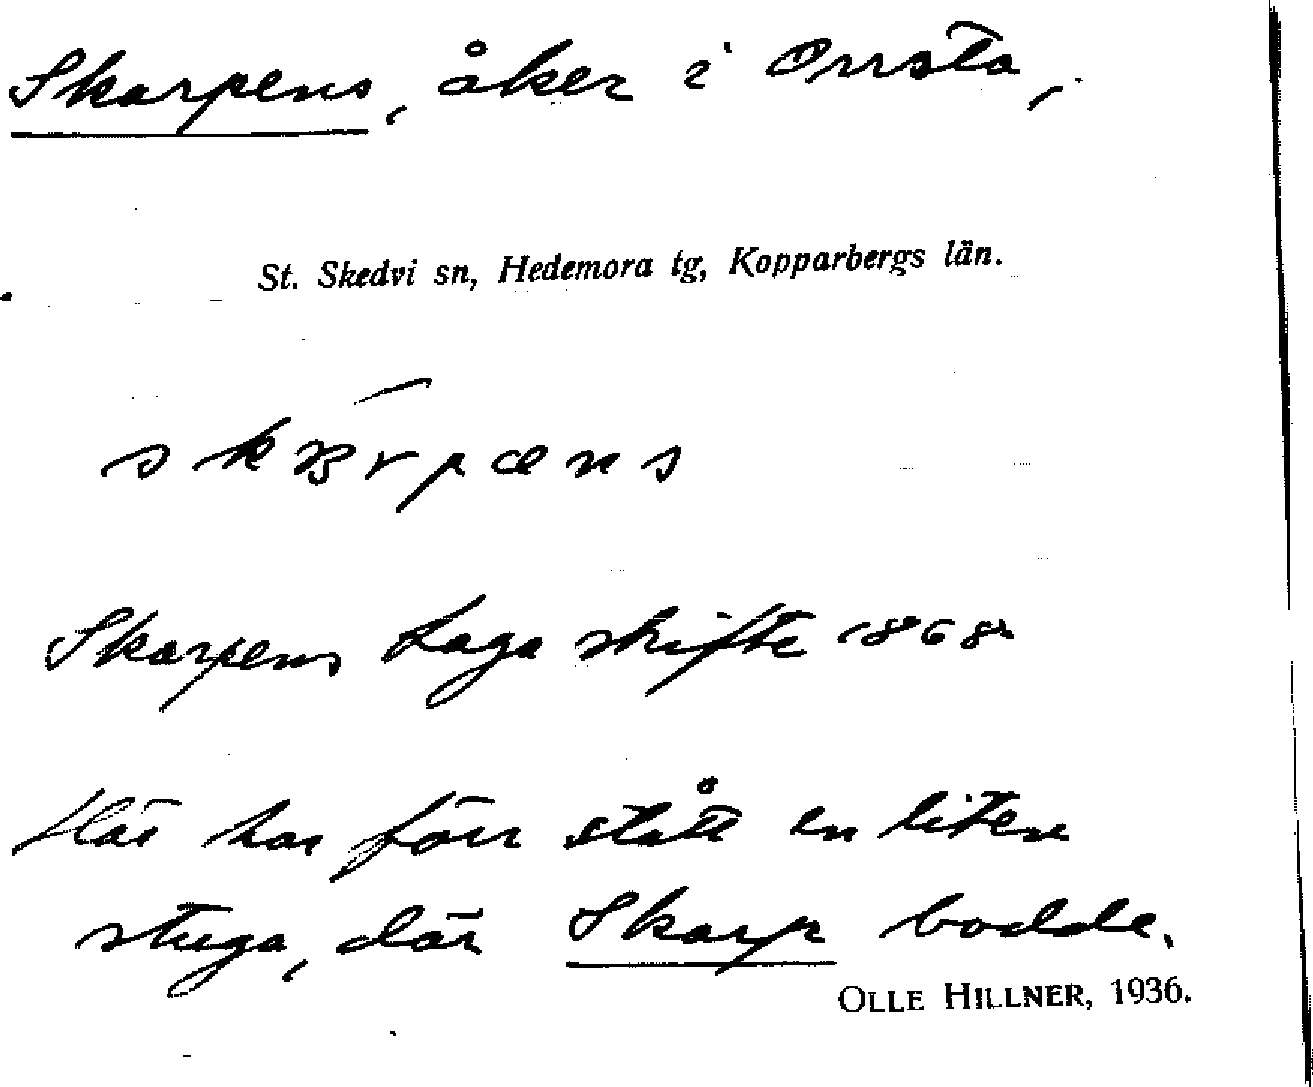 Skarpens, åker i Orrsta,
St. Skedvi sn, Hedemora tg, Kopparbergs län.
Skarpens Laga skifte 1868
Här har förr stått en liten
stuga, där Skarp bodde.
OLLE HILLNER, 1936.